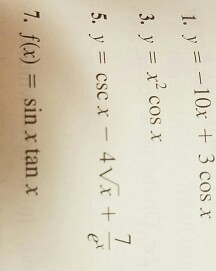 1. y = −10x + 3 cos x
3. y = x² cos x
5. y = csc x − 4√x + 7/eˣ
7. f(x) = sin x tan x